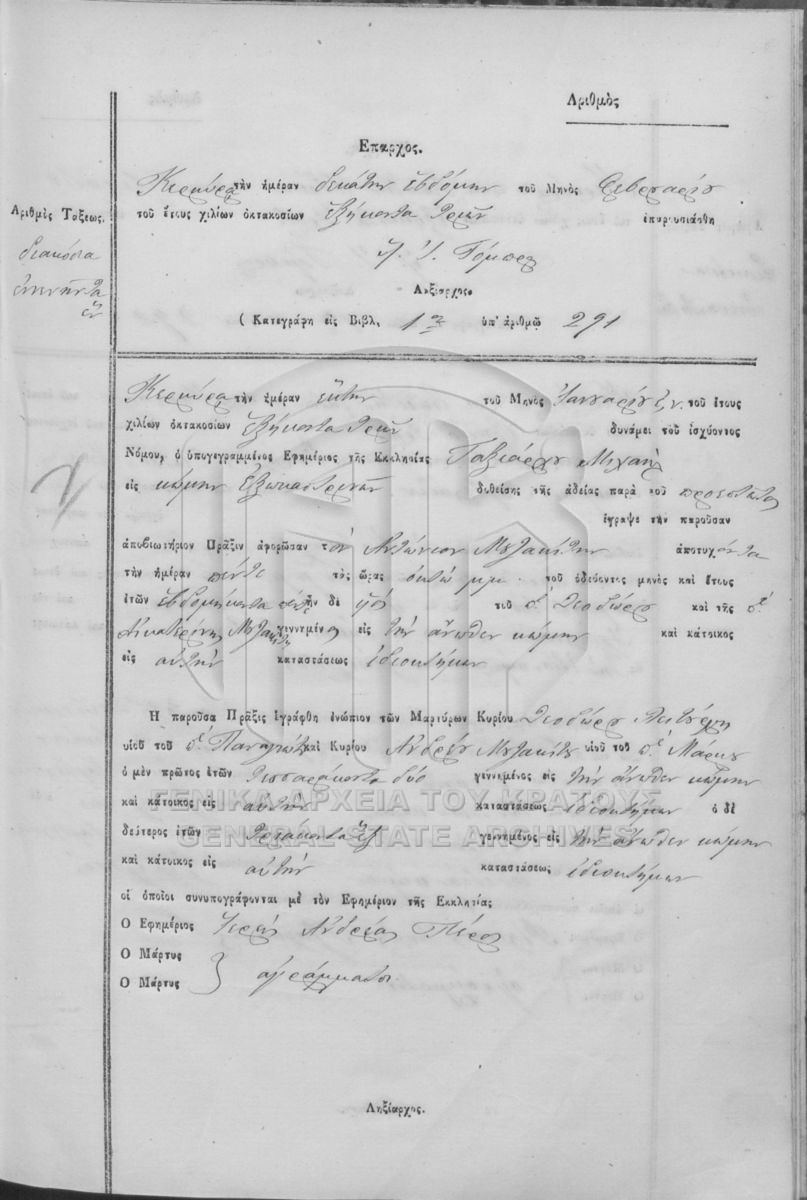 Ἀριθμὸς
Επαρχος.
Κερκύρα τὴν ἡμέραν δεκάτην ἑβδόμην τοῦ Μηνὸς Φεβρουαρίου
τοῦ ἔτους χιλίων ὀκτακοσίων ἑξήκοντα τριῶν ἐπαρουσιάσθη
Ληξίαρχος.
(Κατεγράφη εἰς Βιβλ. 1 ὑπ' ἀριθμῷ 291
Ἀριθμὸς Τάξεως.
διακόσια
ἐννενῆντα
ἓν
Κερκύρα τὴν ἡμέραν ἕκτην τοῦ Μηνὸς Ἰανουαρίου ἔ.ν. τοῦ ἔτους
χιλίων ὀκτακοσίων ἑξήκοντα τριῶν δυνάμει τοῦ ἰσχύοντος
Νόμου, ὁ ὑπογεγραμμένος Ἐφημέριος τῆς Ἐκκλησίας Ταξιάρχου Μιχαὴλ
εἰς κώμην δοθείσης τῆς ἀδείας παρὰ τοῦ προεστῶτος
ἔγραψε τὴν παροῦσαν
ἀποβιωτήριον Πρᾶξιν ἀφορῶσαν τὸν Ἀντώνιον ἀποτυχόντα
τὴν ἡμέραν πέντε τὰς ὥρας ὀκτὼ μ.μ. τοῦ ὁδεύοντος μηνὸς καὶ ἔτους
ἐτῶν ἑβδομήκοντα πέντε ἦν δὲ υἱὸς τοῦ π. Θεοδώρου καὶ τῆς π.
Αἰκατερίνης γεννημένος εἰς τὴν ἄνωθεν κώμην καὶ κάτοικος
εἰς αὐτὴν καταστάσεως ἰδιοκτήμων
Ἡ παροῦσα Πρᾶξις ἐγράφθη ἐνώπιον τῶν Μαρτύρων Κυρίου Θεοδώρου
υἱοῦ τοῦ π. Παναγιώτη καὶ Κυρίου Ἀνδρέου υἱοῦ τοῦ π. Μάρκου
ὁ μὲν πρῶτος ἐτῶν τεσσαράκοντα δύο γεννημένος εἰς τὴν ἄνωθεν κώμην
καὶ κάτοικος εἰς αὐτὴν καταστάσεως ἰδιοκτήμων ὁ δὲ
δεύτερος ἐτῶν τριάκοντα ἓξ γεννημένος εἰς τὴν ἄνωθεν κώμην
καὶ κάτοικος εἰς αὐτὴν καταστάσεως ἰδιοκτήμων
οἱ ὁποῖοι συνυπογράφονται μὲ τὸν Ἐφημέριον τῆς Ἐκκλησίας
Ὁ Ἐφημέριος Ἱερεὺς Ἀνδρέας
Ὁ Μάρτυς
Ὁ Μάρτυς } ἀγράμματοι
Ληξίαρχος.
ΓΕΝΙΚΑ ΑΡΧΕΙΑ ΤΟΥ ΚΡΑΤΟΥΣ
GENERAL STATE ARCHIVES